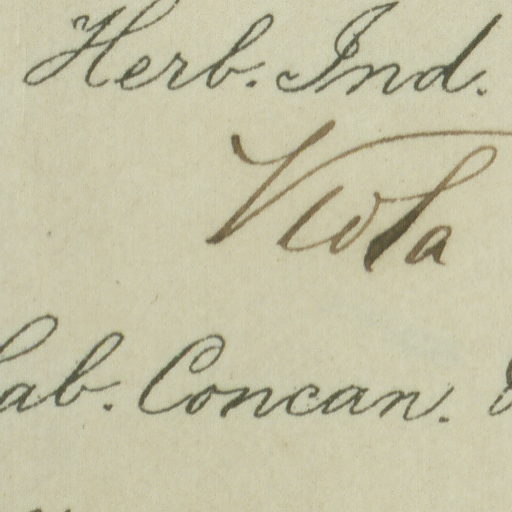 Herb. Ind.
Viola
Hab. Concan.